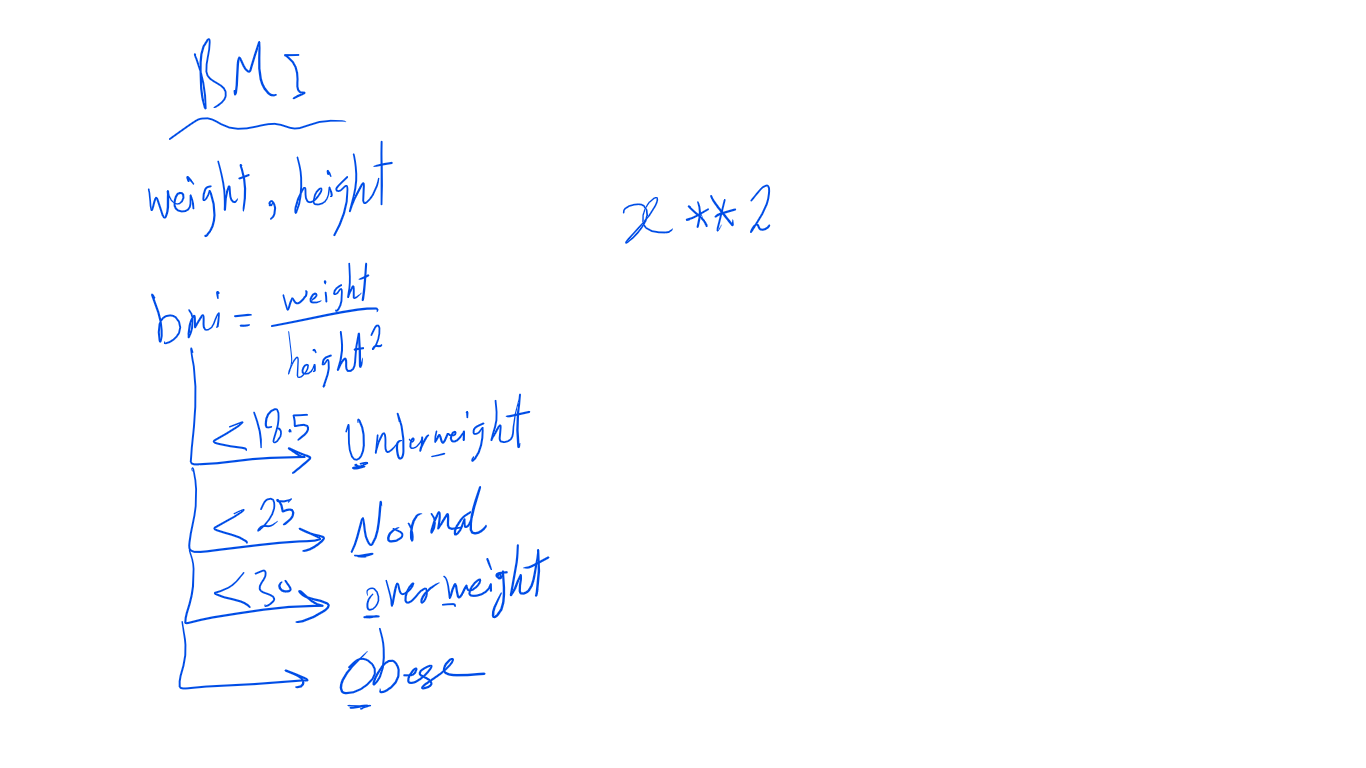 BMI
weight, height
x ** 2
bmi = weight
height²
<18.5 Underweight
<25 Normal
<30 overweight
Obese